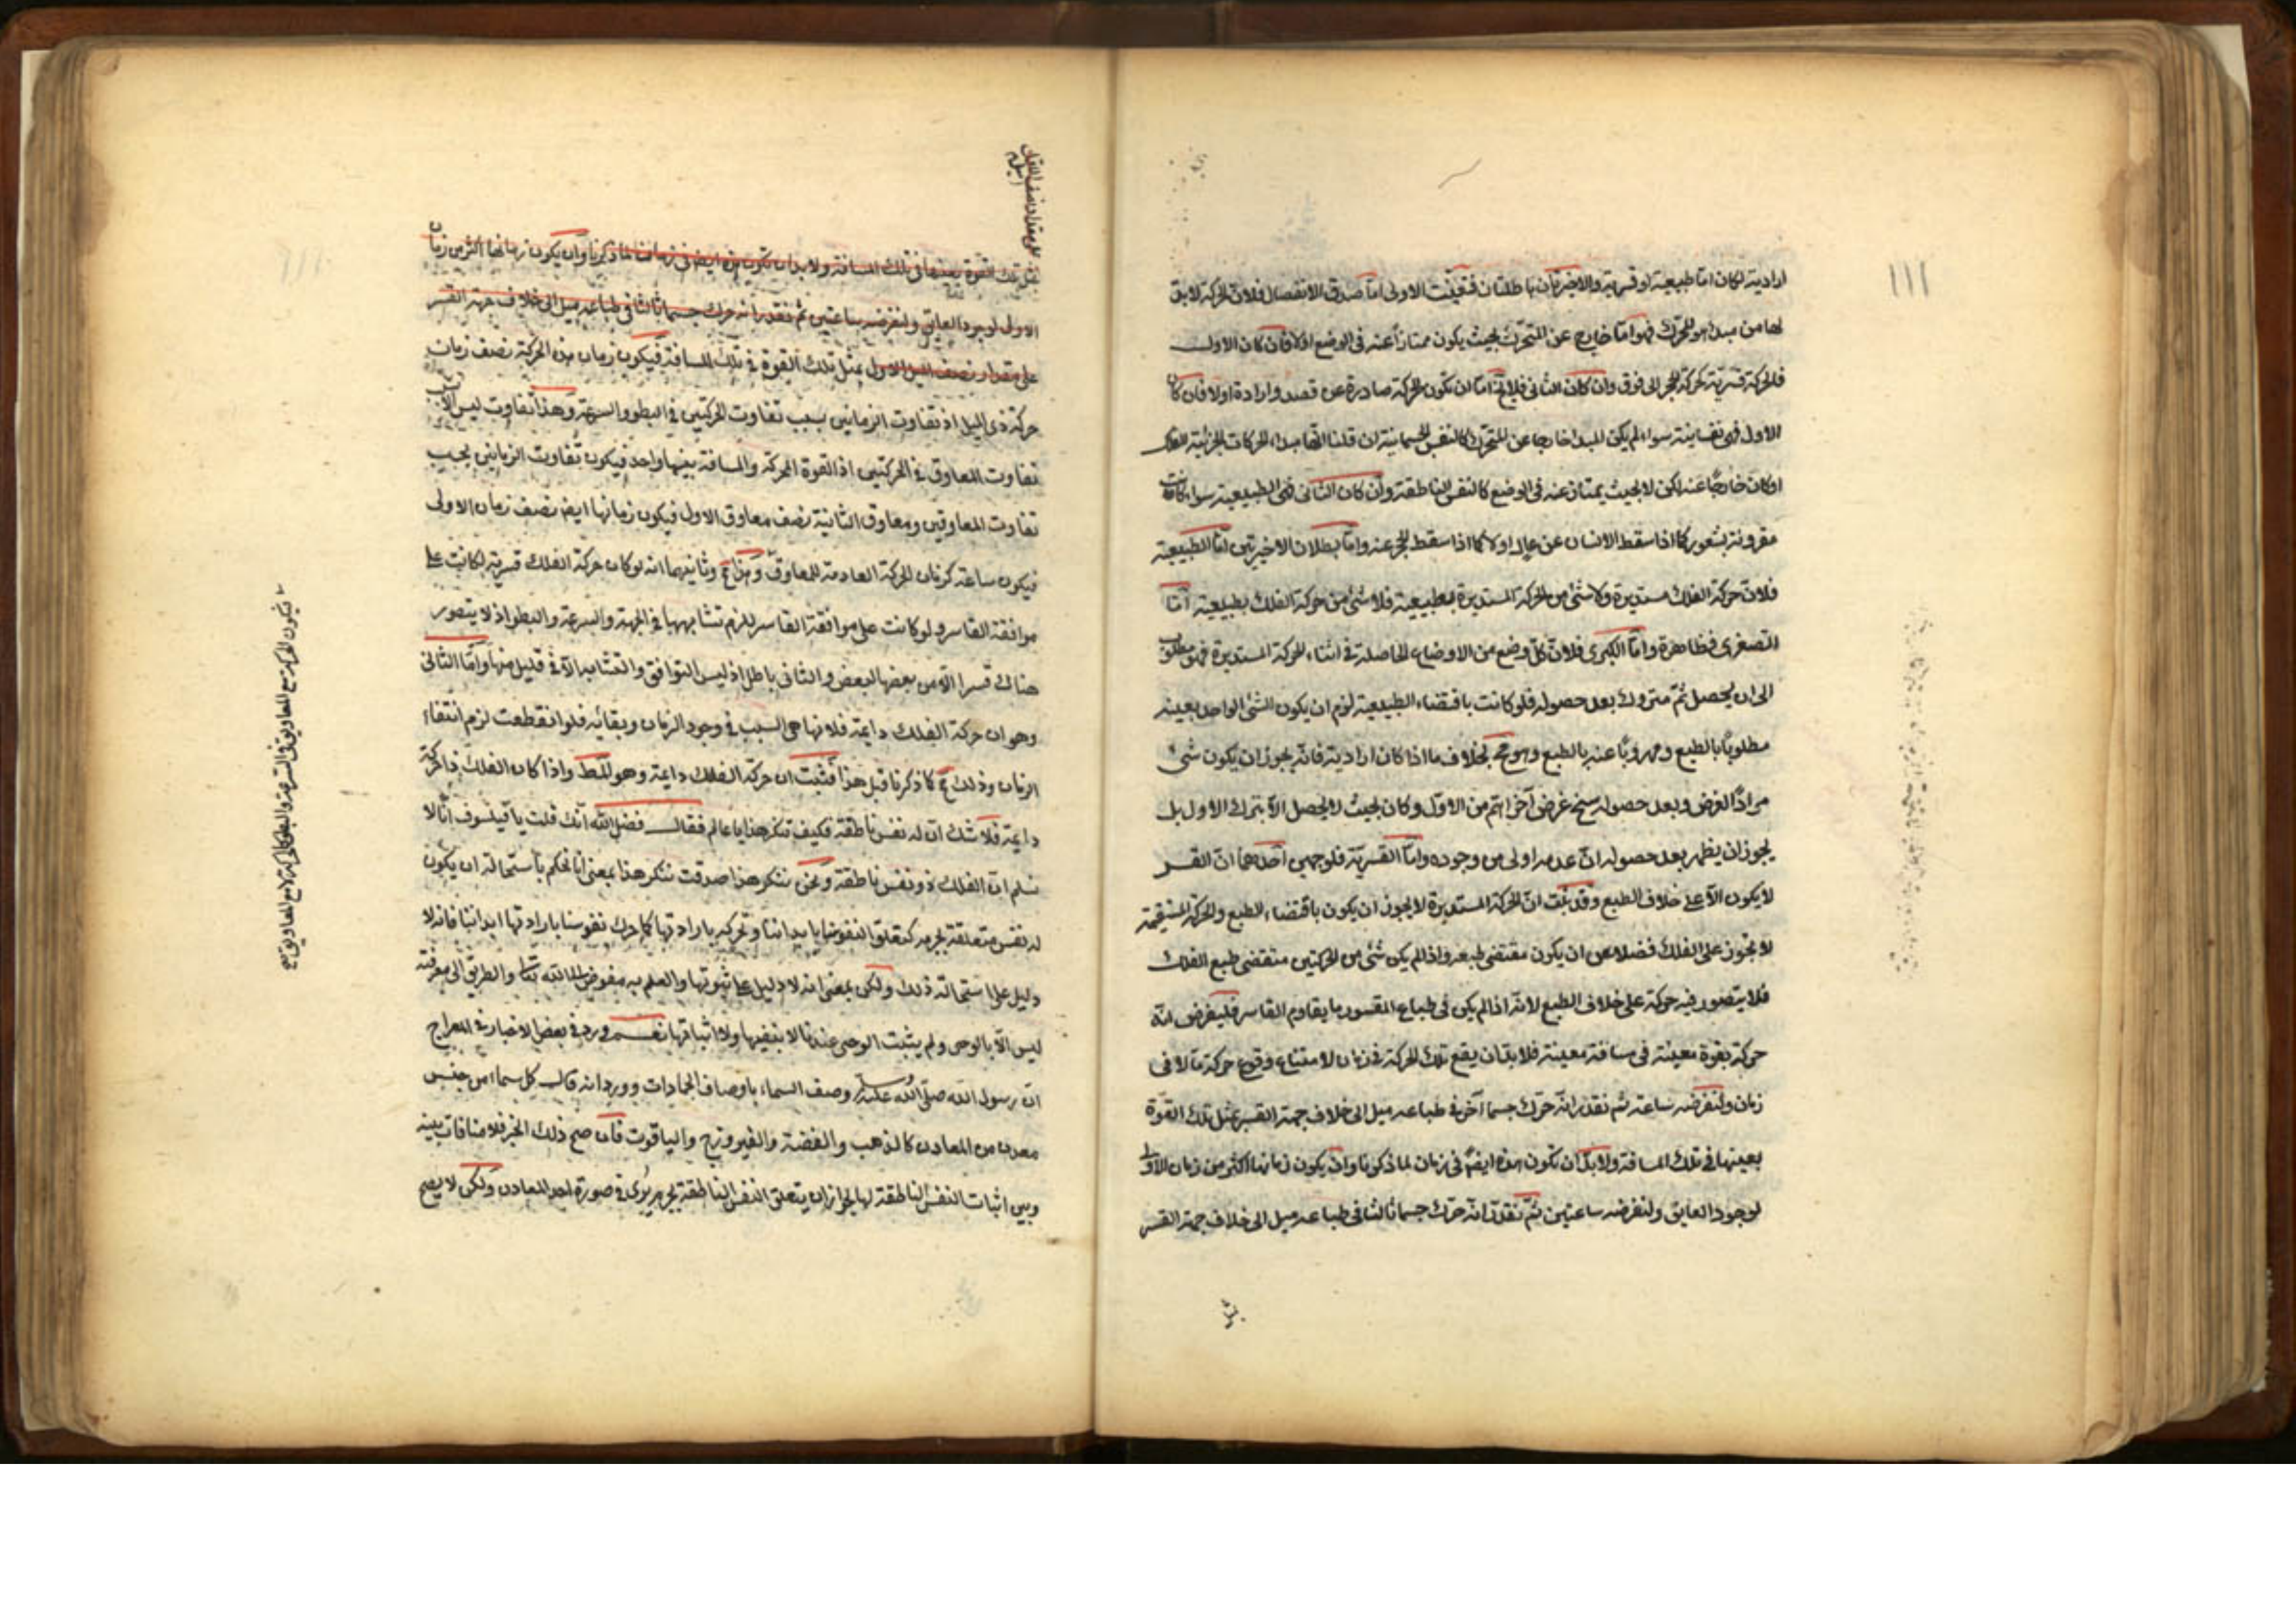 ١١١
ارادية لكان اما طبيعية او قسرية والاخيرتان باطلتان فتعينت الاولى اما صدق الانفصال فلان الحركة لا بد
لها من مبدأ هو المحرك فهو اما خارج عن المتحرك بحيث يكون ممتازا عنه في الوضع اولا فان كان الاول
فالحركة قسرية كحركة الحجر الى فوق وان كان الثاني فلا يخ اما ان تكون الحركة صادرة عن قصد وارادة اولا فان كان
الاول فهي نفسانية سواء لم يكن المبدأ خارجا عن المتحرك كالنفس الجسمانية ان قلنا انها مبداء الحركات الجزئية للفلك
او كان خارجا عنه لكن لا بحيث يمتاز عنه في الوضع كالنفس الناطقة وان كان الثاني فهي الطبيعية سواء كانت
مقرونة بشعور كما اذا سقط الانسان عن عال اولا كما اذا سقط الحجر عنه واما بطلان الاخيرتين اما الطبيعية
فلان حركة الفلك مستديرة ولا شئ من الحركة المستديرة بطبيعية فلا شئ من حركة الفلك بطبيعية اما
الصغرى فظاهرة واما الكبرى فلان كل وضع من الاوضاع الحاصلة في اثناء الحركة المستديرة فهو مطلوب
الى ان يحصل ثم متروك بعد حصوله فلو كانت باقتضاء الطبيعية لزم ان يكون الشئ الواحد بعينه
مطلوبا بالطبع ومهروبا عنه بالطبع وهو مح بخلاف ما اذا كان ارادية فانه يجوز ان يكون شئ
مرادا لغرض وبعد حصوله سنح غرض آخر اهم من الاول وكان بحيث لا يحصل الا بترك الاول بل
يجوز ان يظهر بعد حصوله ان عدمه اولى من وجوده واما القسرية فلوجهين احدهما ان القسر
لا يكون الا على خلاف الطبع وقد ثبت ان الحركة المستديرة لا يجوز ان يكون باقتضاء الطبع والحركة المستقيمة
لا تجوز على الفلك فضلا من ان يكون مقتضى طبعه واذا لم يكن شئ من الحركتين مقتضى طبع الفلك
فلا يتصور فيه حركة على خلاف الطبع لانه اذا لم يكن في طباع المقسور ما يقاوم القاسر فليفرض انه
حركة بقوة معينة في مسافة معينة فلا بد ان يقع تلك الحركة في زمان لامتناع وقوع حركة ما لا في
زمان ولنفرضه ساعة ثم نقدر انه حرك جسما آخر في طباعه ميل الى خلاف جهة القسر بمثل تلك القوة
بعينها في تلك المسافة ولا بد ان تكون هذه ايضا في زمان لما ذكرنا وان يكون زمانها اكثر من زمان الاولى
لوجود العايق ولنفرضه ساعتين ثم نقدر انه حرك جسما ثالثا في طباعه ميل الى خلاف جهة القسر
على مقدار نصف الميل الاول
بمثل تلك القوة بعينها في تلك المسافة ولا بد ان تكون هذه ايضا في زمان لما ذكرنا وان يكون زمانها اكثر من زمان
الاولى لوجود العايق ولنفرضه ساعتين ثم نقدر انه حرك جسما ثالثا في طباعه ميل الى خلاف جهة القسر
على مقدار نصف الميل الاول بمثل تلك القوة في تلك المسافة فيكون زمان هذه الحركة نصف زمان
حركة ذي الميل اذ تفاوت الزمانين بسبب تفاوت الحركتين في البطؤ والسرعة وهذا تفاوت ليس الا بسبب
تفاوت المعاوق في الحركتين اذ القوة المحركة والمسافة بينهما واحد فيكون تفاوت الزمانين بحسب
تفاوت المعاوقين ومعاوق الثانية نصف معاوق الاول فيكون زمانها ايضا نصف زمان الاولى
فيكون ساعة كزمان الحركة العادمة للمعاوق وهذا مح وثانيهما انه لو كان حركة الفلك قسرية لكانت على
موافقة القاسر ولو كانت على موافقة القاسر للزم تشابهها في الجهة والسرعة والبطؤ اذ لا يتصور
هناك قسرا الا من بعضها لبعض والثاني باطل اذ ليس التوافق والتشابه الا في قليل منها واما الثاني
وهو ان حركة الفلك دايمة فلانها هي السبب في وجود الزمان وبقائه فلو انقطعت لزم انتفاء
الزمان وذلك مح كما ذكرنا قبل هذا فثبت ان حركة الفلك دايمة وهو المط واذا كان الفلك ذا حركة
دايمة فلا شك ان له نفس ناطقة فكيف تنكر هذا يا عالم فقال فضل الله انك قلت يا فيلسوف انا لا
نسلم ان الفلك ذو نفس ناطقة ونحن ننكر هذا صدقت ننكر هذا بمعنى انا نحكم باستحالة ان يكون
له نفس متعلقة بجرمه كتعلق النفوس بابداننا وتحركه بارادتها كما حرك نفوسنا بارادتها ابداننا فانه لا
دليل على استحالة ذلك ولكن بمعنى انه لا دليل على ثبوتها والعلم به مفوض الى الله تعا والطريق الى معرفته
ليس الا بالوحى ولم يثبت الوحى عندنا لا بنفيها ولا اثباتها نعم ورد في بعض الاخبار في المعراج
ان رسول الله صلى الله عليه وسلم وصف السماء باوصاف الجمادات وورد انه قال كل سماء من جنس
معدن من المعادن كالذهب والفضة والفيروزج والياقوت فان صح ذلك الخبر فلا منافات بينه
وبين اثبات النفس الناطقة لها لجواز ان يتعلق النفس الناطقة بجرم يرى في صورة احد المعادن ولكن لا يصح
فيكون الحركة مع المعاوق في السرعة والبطؤ كالحركة لا مع المعاوق مح